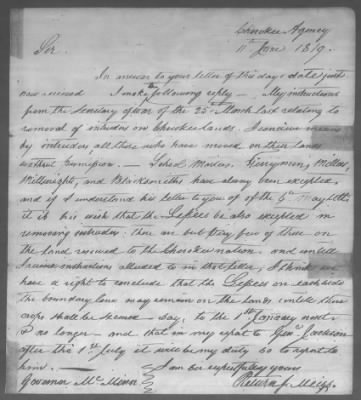 Cherokee Agency
11th June 1819.
Sir
In answer to your letter of this days date just
now received I make the following reply — My instructions
from the Secretary of War of the 25th March last relating to
removal of intruders on Cherokee lands. I conceive means
by intruders all those who have moved on their lands
without permission. — School Masters, Ferrymen, Millers,
Millwrights, and Blacksmiths have always been excepted,
and if I understand his letter to you of the 6th May Ulto
it is his wish that the Lessees be also excepted in
removing intruders: there are but very few of these on
the land reserved to the Cherokee nation, and untill
I receive instructions alluded to in that letter, I think we
have a right to conclude that the Lessees on each side
the boundary lines may remain on the lands untill their
crops shall be secured — say, to the 1st January next
& no longer — and that in my report to Genl Jackson
after the 1st July it will be my duty so to report to
him. —
I am very respectfully yours
Return J. Meigs.
Governor McMinn